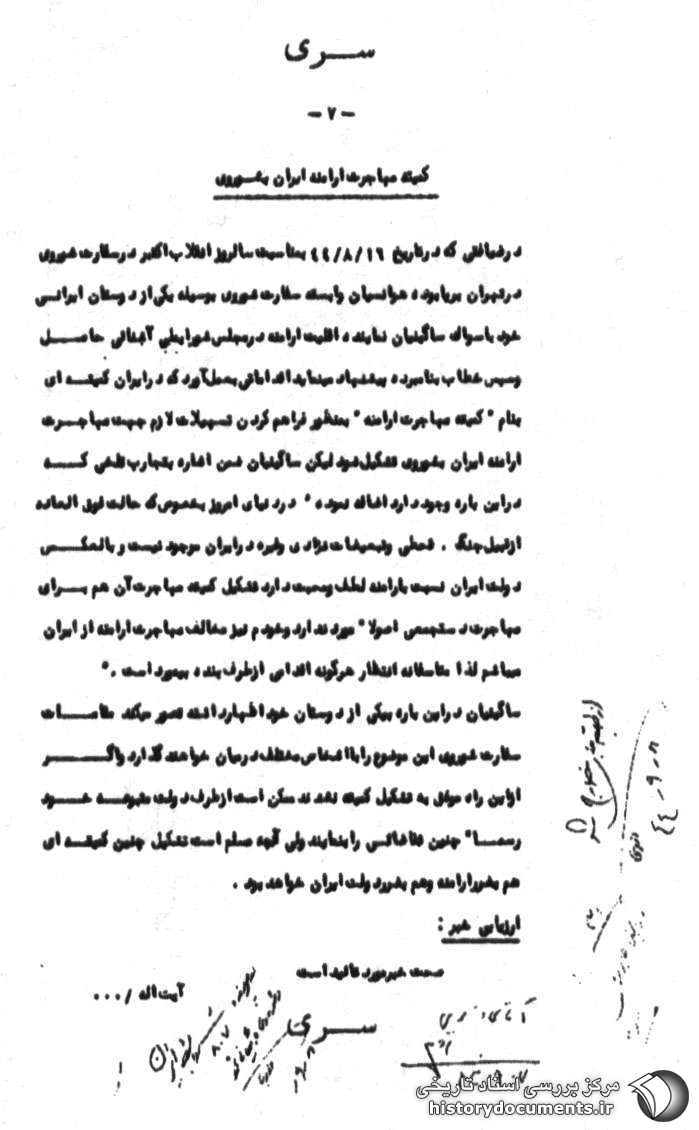 سری
- ٧ -
کمیته مهاجرت ارامنه ایران بشوروی
درضیافتی که درتاریخ ٤٤/٨/١٦ بمناسبت سالروز انقلاب اکتبر درسفارت شوروی
درتهران برپابوده هوانسیان وابسته سفارت شوروی بوسیله یکی از دوستان ایرانی
خود باسواک ساگینیان نماینده اقلیت ارامنه درمجلس شورایملی آشنائی حاصل
وسپس خطاب بنامبرده پیشنهاد مینماید اقداماتی بعمل آورد که درایران کمیته ای
بنام " کمیته مهاجرت ارامنه " بمنظور فراهم کردن تسهیلات لازم جهت مهاجرت
ارامنه ایران بشوروی تشکیل شود لیکن ساگینیان ضمن اشاره بتجارب تلخی که
دراین باره وجود دارد اضافه نموده " دردنیای امروز بخصوص که حالت فوق العاده
ازقبیل جنگ ، قحطی وتبعیضات نژادی وغیره درایران موجود نیست و بالعکس
دولت ایران نسبت بارامنه لطف ومحبت دارد تشکیل کمیته مهاجرت آن هم برای
مهاجرت دستجمعی اصولا" مورد ندارد وخودم نیز مخالف مهاجرت ارامنه از ایران
میباشم لذا متاسفانه انتظار هرگونه اقدامی ازطرف بنده بیمورد است ."
ساگینیان دراین باره بیکی از دوستان خود اظهارداشته تصور میکند مقامات
سفارت شوروی این موضوع را بااشخاص مختلف درمیان خواهند گذارد واگر
ازاین راه موفق به تشکیل کمیته نشدند ممکن است ازطرف دولت متبوعه خود
رسما" چنین تقاضائی را بنمایند ولی آنچه مسلم است تشکیل چنین کمیته ای
هم بضررارامنه وهم بضرردولت ایران خواهد بود .
ارزیابی خبر :
صحت خبرمورد تائید است
آیت اله /٠٠٠
سری
٤٤-٩-٨
مرکز بررسی اسناد تاریخی
historydocuments.ir